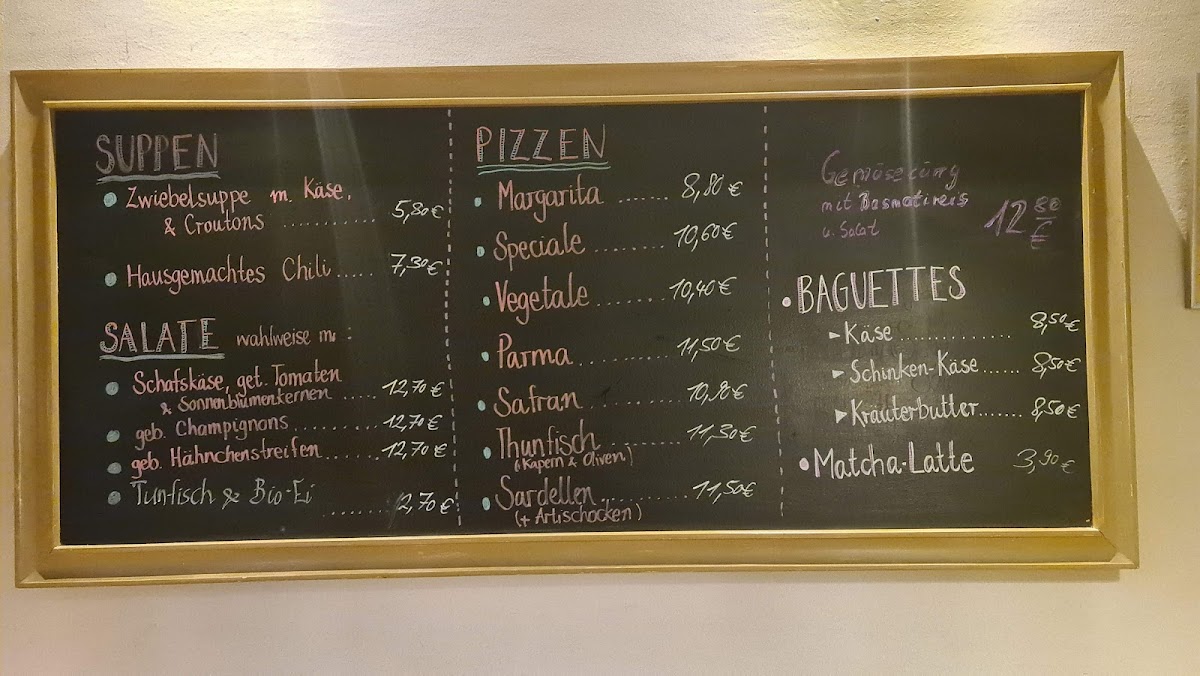 SUPPEN
Zwiebelsuppe m. Käse,
& Croutons ............ 5,80€
Hausgemachtes Chili ..... 7,30€
SALATE wahlweise m:
Schafskäse, get. Tomaten
& Sonnenblumenkernen ..... 12,70€
geb. Champignons ............ 12,70€
geb. Hähnchenstreifen ...... 12,70€
Tunfisch & Bio-Ei
............ 2,70€
PIZZEN
Margarita ...... 8,80€
Speciale ......... 10,60€
Vegetale ......... 10,40€
Parma ............ 11,50€
Safran ............
Thunfisch ......... 11,30€
(Kapern & Oliven)
Sardellen ......... 11,50€
(+ Artischocken)
Gemüsecurry
mit Basmatireis
u. Salat 12 80 €
BAGUETTES
Käse ............... 8,50€
Schinken-Käse ...... 8,50€
Kräuterbutter ....... 8,50€
Matcha-Latte 3,90€